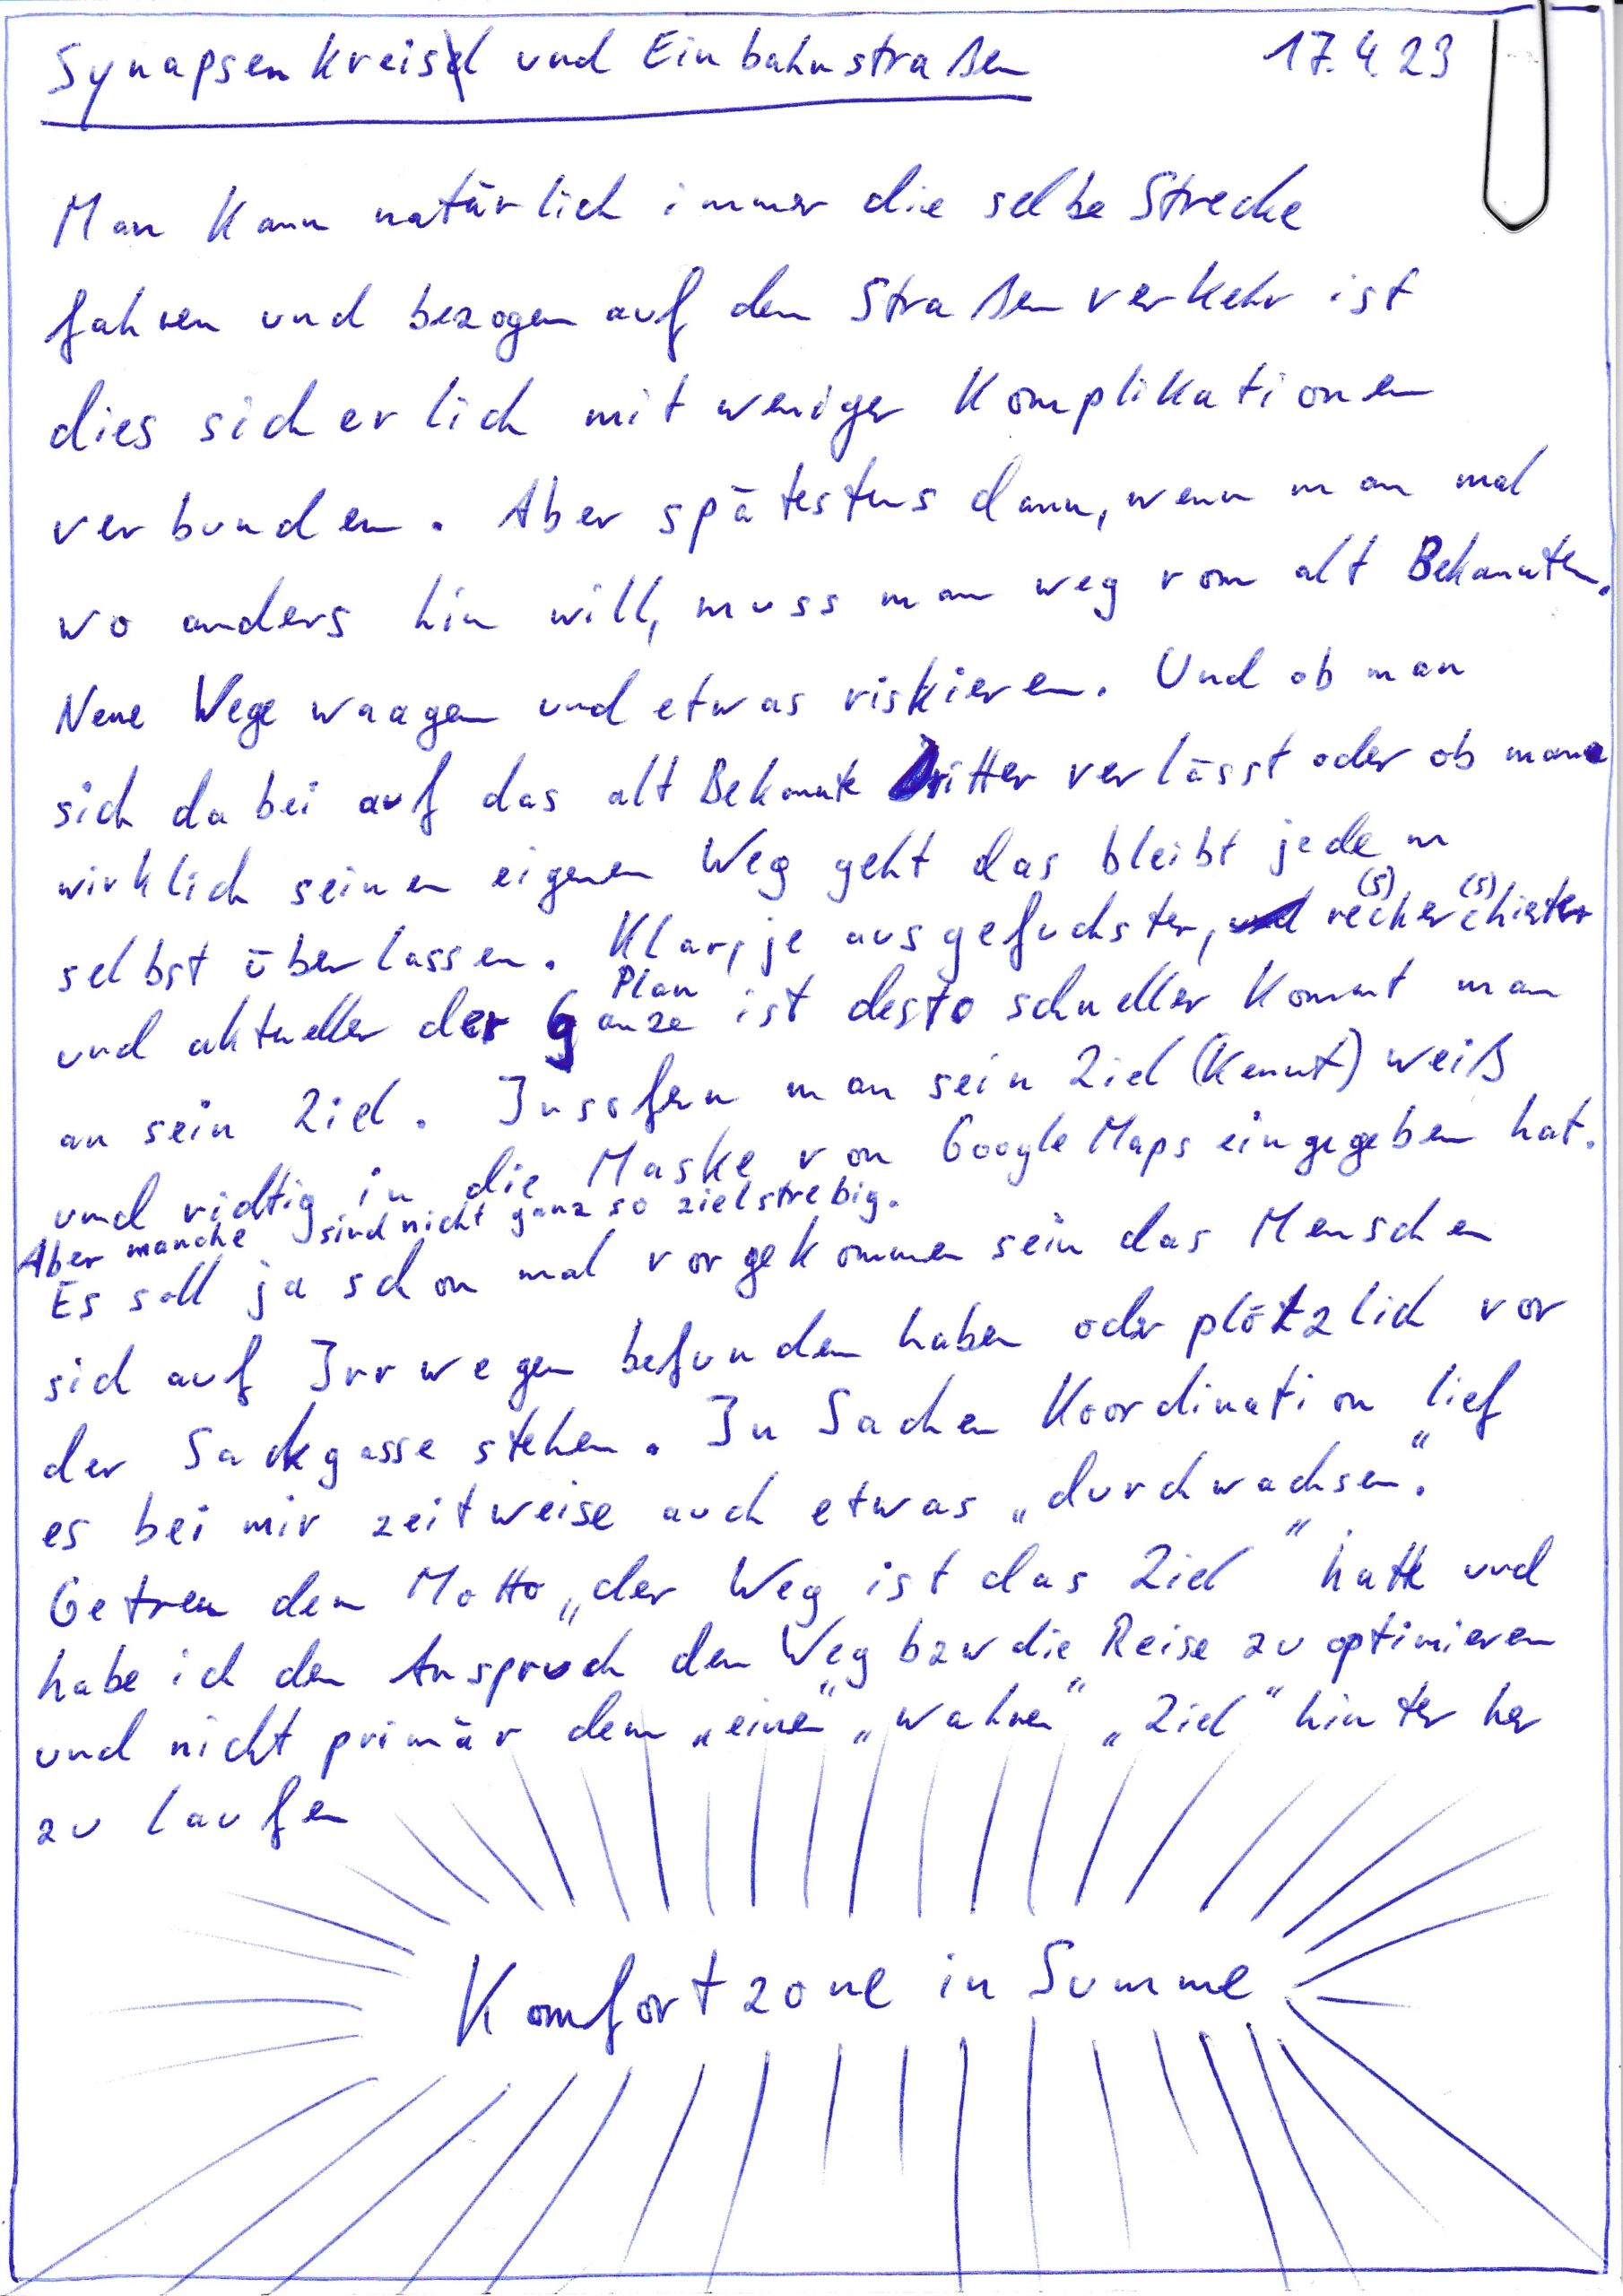 Synapsenkreisel und Einbahnstraßen 17.4.23
Man kann natürlich immer die selbe Strecke
fahren und bezogen auf den Straßenverkehr ist
dies sicherlich mit weniger Komplikationen
verbunden. Aber spätestens dann, wenn man mal
wo anders hin will, muss man weg vom alt Bekannten.
Neue Wege waagen und etwas riskieren. Und ob man
sich dabei auf das alt Bekannte Dritter verlässt oder ob man
wirklich seinen eigenen Weg geht das bleibt jedem
selbst überlassen. Klar, je ausgefuchster, re(s)cher(s)chierter
und aktueller der ganze Plan ist desto schneller kommt man
an sein Ziel. Insofern man sein Ziel (kennt) weiß
und richtig in die Maske von Google Maps eingegeben hat.
Aber manche sind nicht ganz so zielstrebig.
Es soll ja schon mal vorgekommen sein das Menschen
sich auf Irrwegen befunden haben oder plötzlich vor
der Sackgasse stehen. In Sachen Koordination lief
es bei mir zeitweise auch etwas „durchwachsen“.
Getreu dem Motto „der Weg ist das Ziel“ hatte und
habe ich den Anspruch den Weg bzw die Reise zu optimieren
und nicht primär dem „einen“ „wahren“ „Ziel“ hinter her
zu laufen
Komfortzone in Summe